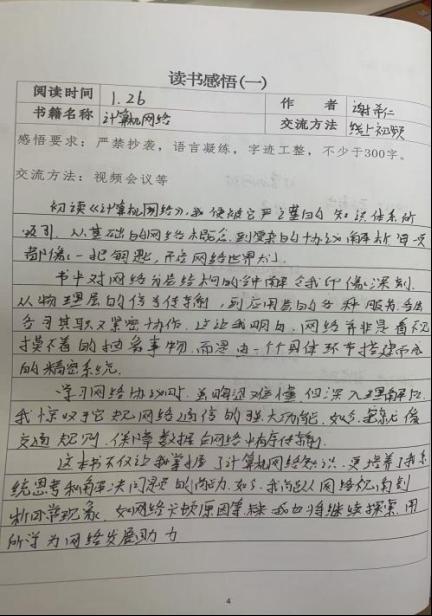 读书感悟(一)
阅读时间 1.26 作 者 谢希仁
书籍名称 计算机网络 交流方法 线上视频
感悟要求：严禁抄袭，语言凝练，字迹工整，不少于300字。
交流方法：视频会议等
初读《计算机网络》，我便被它严谨的知识体系所
吸引，从基础的网络概念，到复杂的协议解析，每一页
都像一把钥匙，开启网络世界大门。
书中对网络分层结构的讲解令我印象深刻，
从物理层的信号传输，到应用层的各种服务，各层
各司其职又紧密协作。这让我明白，网络并非是看不
摸不着的抽象事物，而是由一个个具体环节搭建而成
的精密系统。
学习网络协议时，虽晦涩难懂，但深入理解后，
我惊叹于它规网络通信的强大功能，如就像
交通规则，保障数据在网络中有序传输。
这本书不仅让我掌握了计算机网络知识，更培养了我系
统思考和解决问题的能力，如今，我尝试从网络视角剖
析日常现象，如网络卡顿原因等，未来我也将继续探索，用
所学为网络发展助力
4